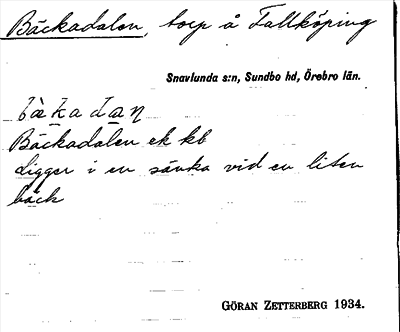 Bäckadalen, torp å Tallköping
Snavlunda s:n, Sundbo hd, Örebro län.
bækadan
Bäckadalen ek kb
Ligger i en sänka vid en liten
bäck
GÖRAN ZETTERBERG 1934.